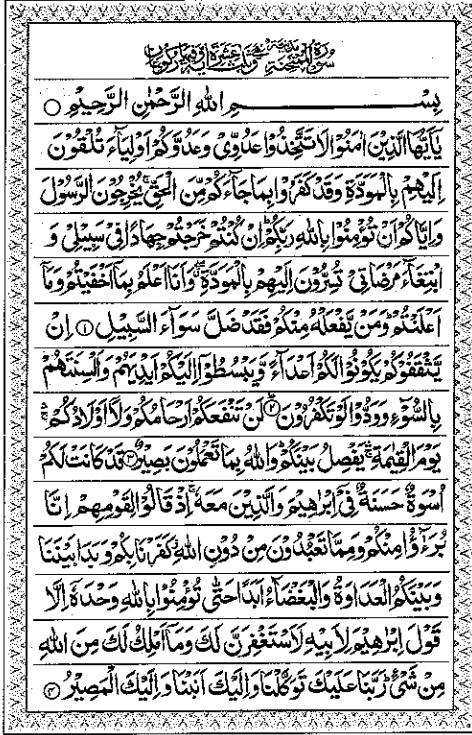 سُوْرَةُ الْمُمْتَحِنَةِ مَدَنِيَّةٌ وَّهِيَ ثَلٰثَ عَشَرَةَ اٰيَةً وَّفِيْهَا رُكُوْعَانِ
بِسْمِ اللّٰهِ الرَّحْمٰنِ الرَّحِيْمِ ○
يٰۤاَيُّهَا الَّذِيْنَ اٰمَنُوْا لَا تَتَّخِذُوْا عَدُوِّيْ وَعَدُوَّكُمْ اَوْلِيَآءَ تُلْقُوْنَ
اِلَيْهِمْ بِالْمَوَدَّةِ وَقَدْ كَفَرُوْا بِمَا جَآءَكُمْ مِّنَ الْحَقِّ ۚ يُخْرِجُوْنَ الرَّسُوْلَ
وَاِيَّاكُمْ اَنْ تُؤْمِنُوْا بِاللّٰهِ رَبِّكُمْ ؕ اِنْ كُنْتُمْ خَرَجْتُمْ جِهَادًا فِيْ سَبِيْلِيْ وَ
ابْتِغَآءَ مَرْضَاتِيْ تُسِرُّوْنَ اِلَيْهِمْ بِالْمَوَدَّةِ ۖ وَاَنَا اَعْلَمُ بِمَاۤ اَخْفَيْتُمْ وَمَاۤ
اَعْلَنْتُمْ ؕ وَمَنْ يَّفْعَلْهُ مِنْكُمْ فَقَدْ ضَلَّ سَوَآءَ السَّبِيْلِ ① اِنْ
يَّثْقَفُوْكُمْ يَكُوْنُوْا لَكُمْ اَعْدَآءً وَّيَبْسُطُوْۤا اِلَيْكُمْ اَيْدِيَهُمْ وَاَلْسِنَتَهُمْ
بِالسُّوْٓءِ وَوَدُّوْا لَوْ تَكْفُرُوْنَ ② لَنْ تَنْفَعَكُمْ اَرْحَامُكُمْ وَلَاۤ اَوْلَادُكُمْ ۛ
يَوْمَ الْقِيٰمَةِ ۛ يَفْصِلُ بَيْنَكُمْ ؕ وَاللّٰهُ بِمَا تَعْمَلُوْنَ بَصِيْرٌ ③ قَدْ كَانَتْ لَكُمْ
اُسْوَةٌ حَسَنَةٌ فِيْۤ اِبْرٰهِيْمَ وَالَّذِيْنَ مَعَهٗ ۚ اِذْ قَالُوْا لِقَوْمِهِمْ اِنَّا
بُرَءٰٓؤُا مِنْكُمْ وَمِمَّا تَعْبُدُوْنَ مِنْ دُوْنِ اللّٰهِ ؗ كَفَرْنَا بِكُمْ وَبَدَا بَيْنَنَا
وَبَيْنَكُمُ الْعَدَاوَةُ وَالْبَغْضَآءُ اَبَدًا حَتّٰى تُؤْمِنُوْا بِاللّٰهِ وَحْدَهٗۤ اِلَّا
قَوْلَ اِبْرٰهِيْمَ لِاَبِيْهِ لَاَسْتَغْفِرَنَّ لَكَ وَمَاۤ اَمْلِكُ لَكَ مِنَ اللّٰهِ
مِنْ شَيْءٍ ؕ رَبَّنَا عَلَيْكَ تَوَكَّلْنَا وَاِلَيْكَ اَنَبْنَا وَاِلَيْكَ الْمَصِيْرُ ④